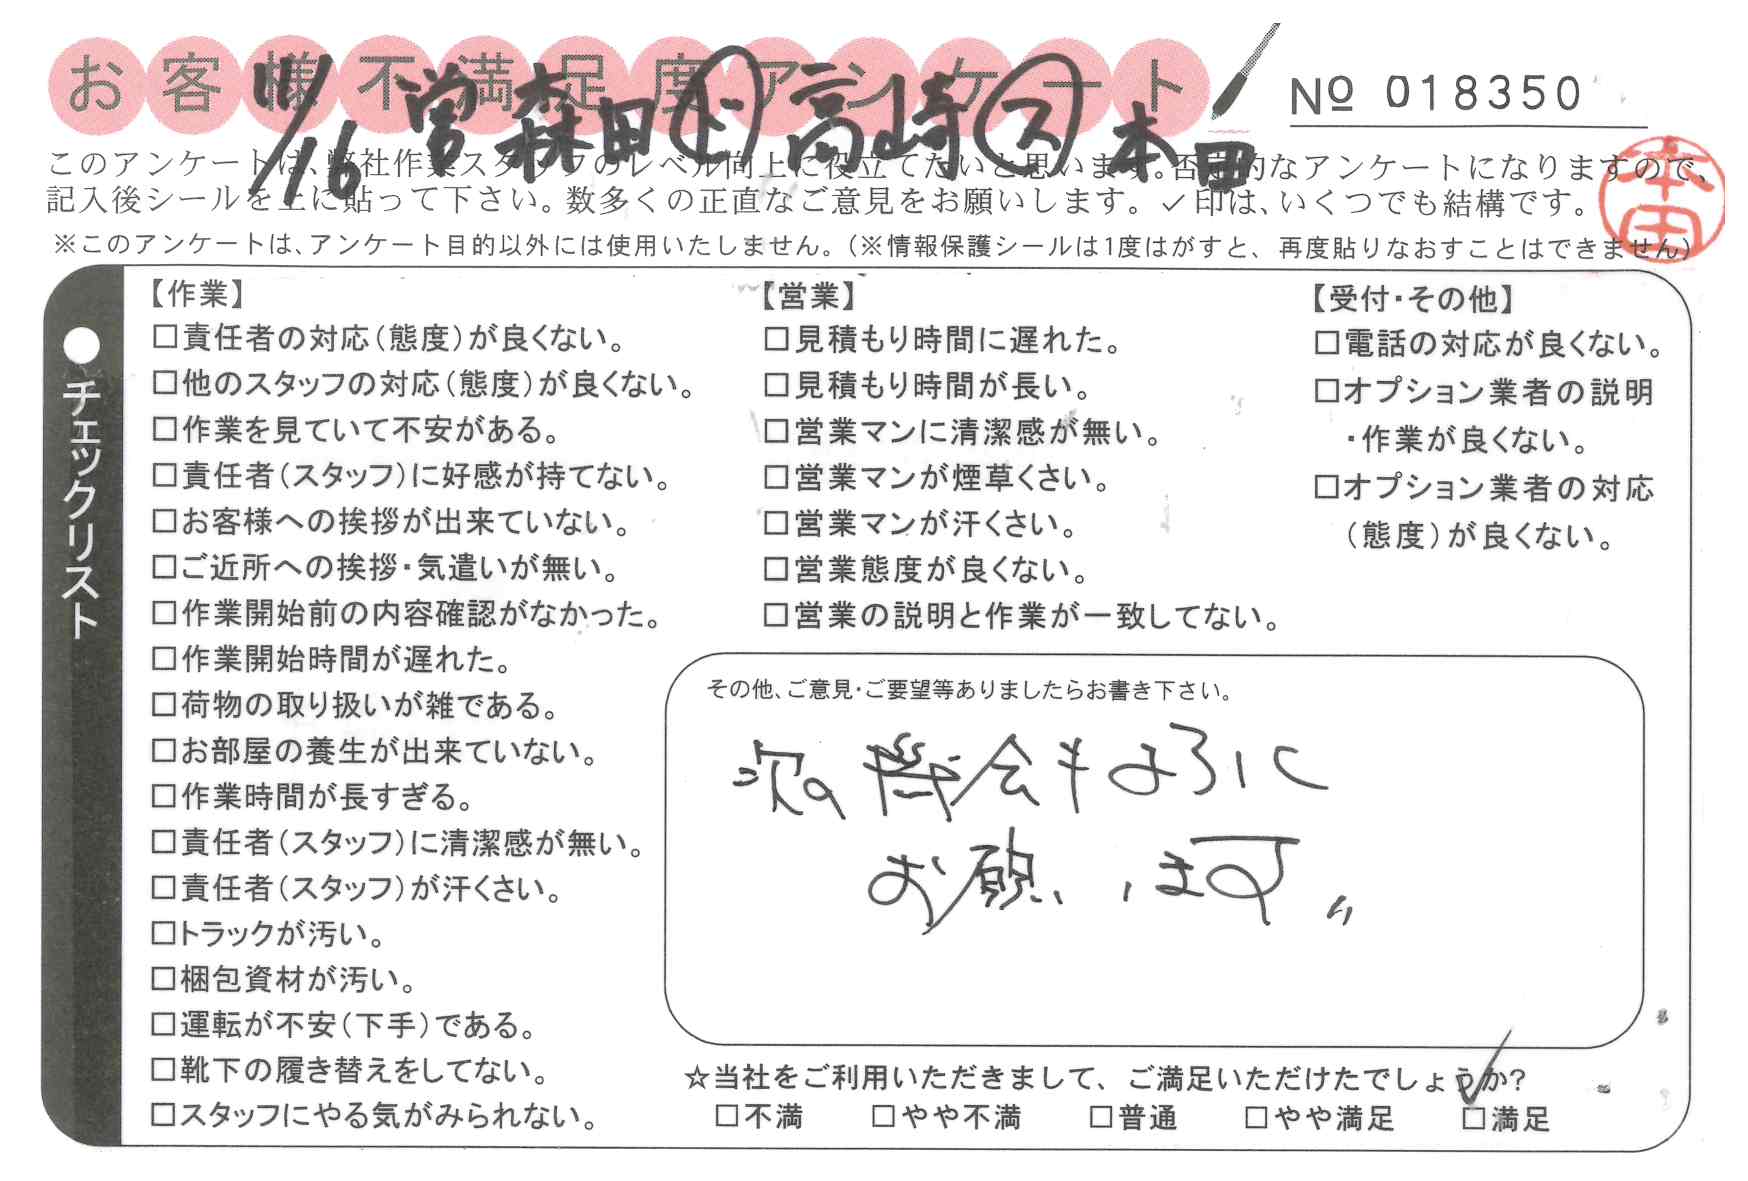 お客様不満足度アンケート
11/16 営 森田 ㊤ 高崎 ㋜ 本田
№ 018350
このアンケートは、弊社作業スタッフのレベル向上に役立てたいと思います。否定的なアンケートになりますので、
記入後シールを上に貼って下さい。数多くの正直なご意見をお願いします。✓印は、いくつでも結構です。
本田
※このアンケートは、アンケート目的以外には使用いたしません。(※情報保護シールは1度はがすと、再度貼りなおすことはできません)
●チェックリスト
【作業】
□責任者の対応(態度)が良くない。
□他のスタッフの対応(態度)が良くない。
□作業を見ていて不安がある。
□責任者(スタッフ)に好感が持てない。
□お客様への挨拶が出来ていない。
□ご近所への挨拶・気遣いが無い。
□作業開始前の内容確認がなかった。
□作業開始時間が遅れた。
□荷物の取り扱いが雑である。
□お部屋の養生が出来ていない。
□作業時間が長すぎる。
□責任者(スタッフ)に清潔感が無い。
□責任者(スタッフ)が汗くさい。
□トラックが汚い。
□梱包資材が汚い。
□運転が不安(下手)である。
□靴下の履き替えをしてない。
□スタッフにやる気がみられない。
【営業】
□見積もり時間に遅れた。
□見積もり時間が長い。
□営業マンに清潔感が無い。
□営業マンが煙草くさい。
□営業マンが汗くさい。
□営業態度が良くない。
□営業の説明と作業が一致してない。
【受付・その他】
□電話の対応が良くない。
□オプション業者の説明
・作業が良くない。
□オプション業者の対応
(態度)が良くない。
その他、ご意見・ご要望等ありましたらお書き下さい。
次の機会もよろしく
お願いします〃
☆当社をご利用いただきまして、ご満足いただけたでしょうか?
□不満 □やや不満 □普通 □やや満足 ☑満足